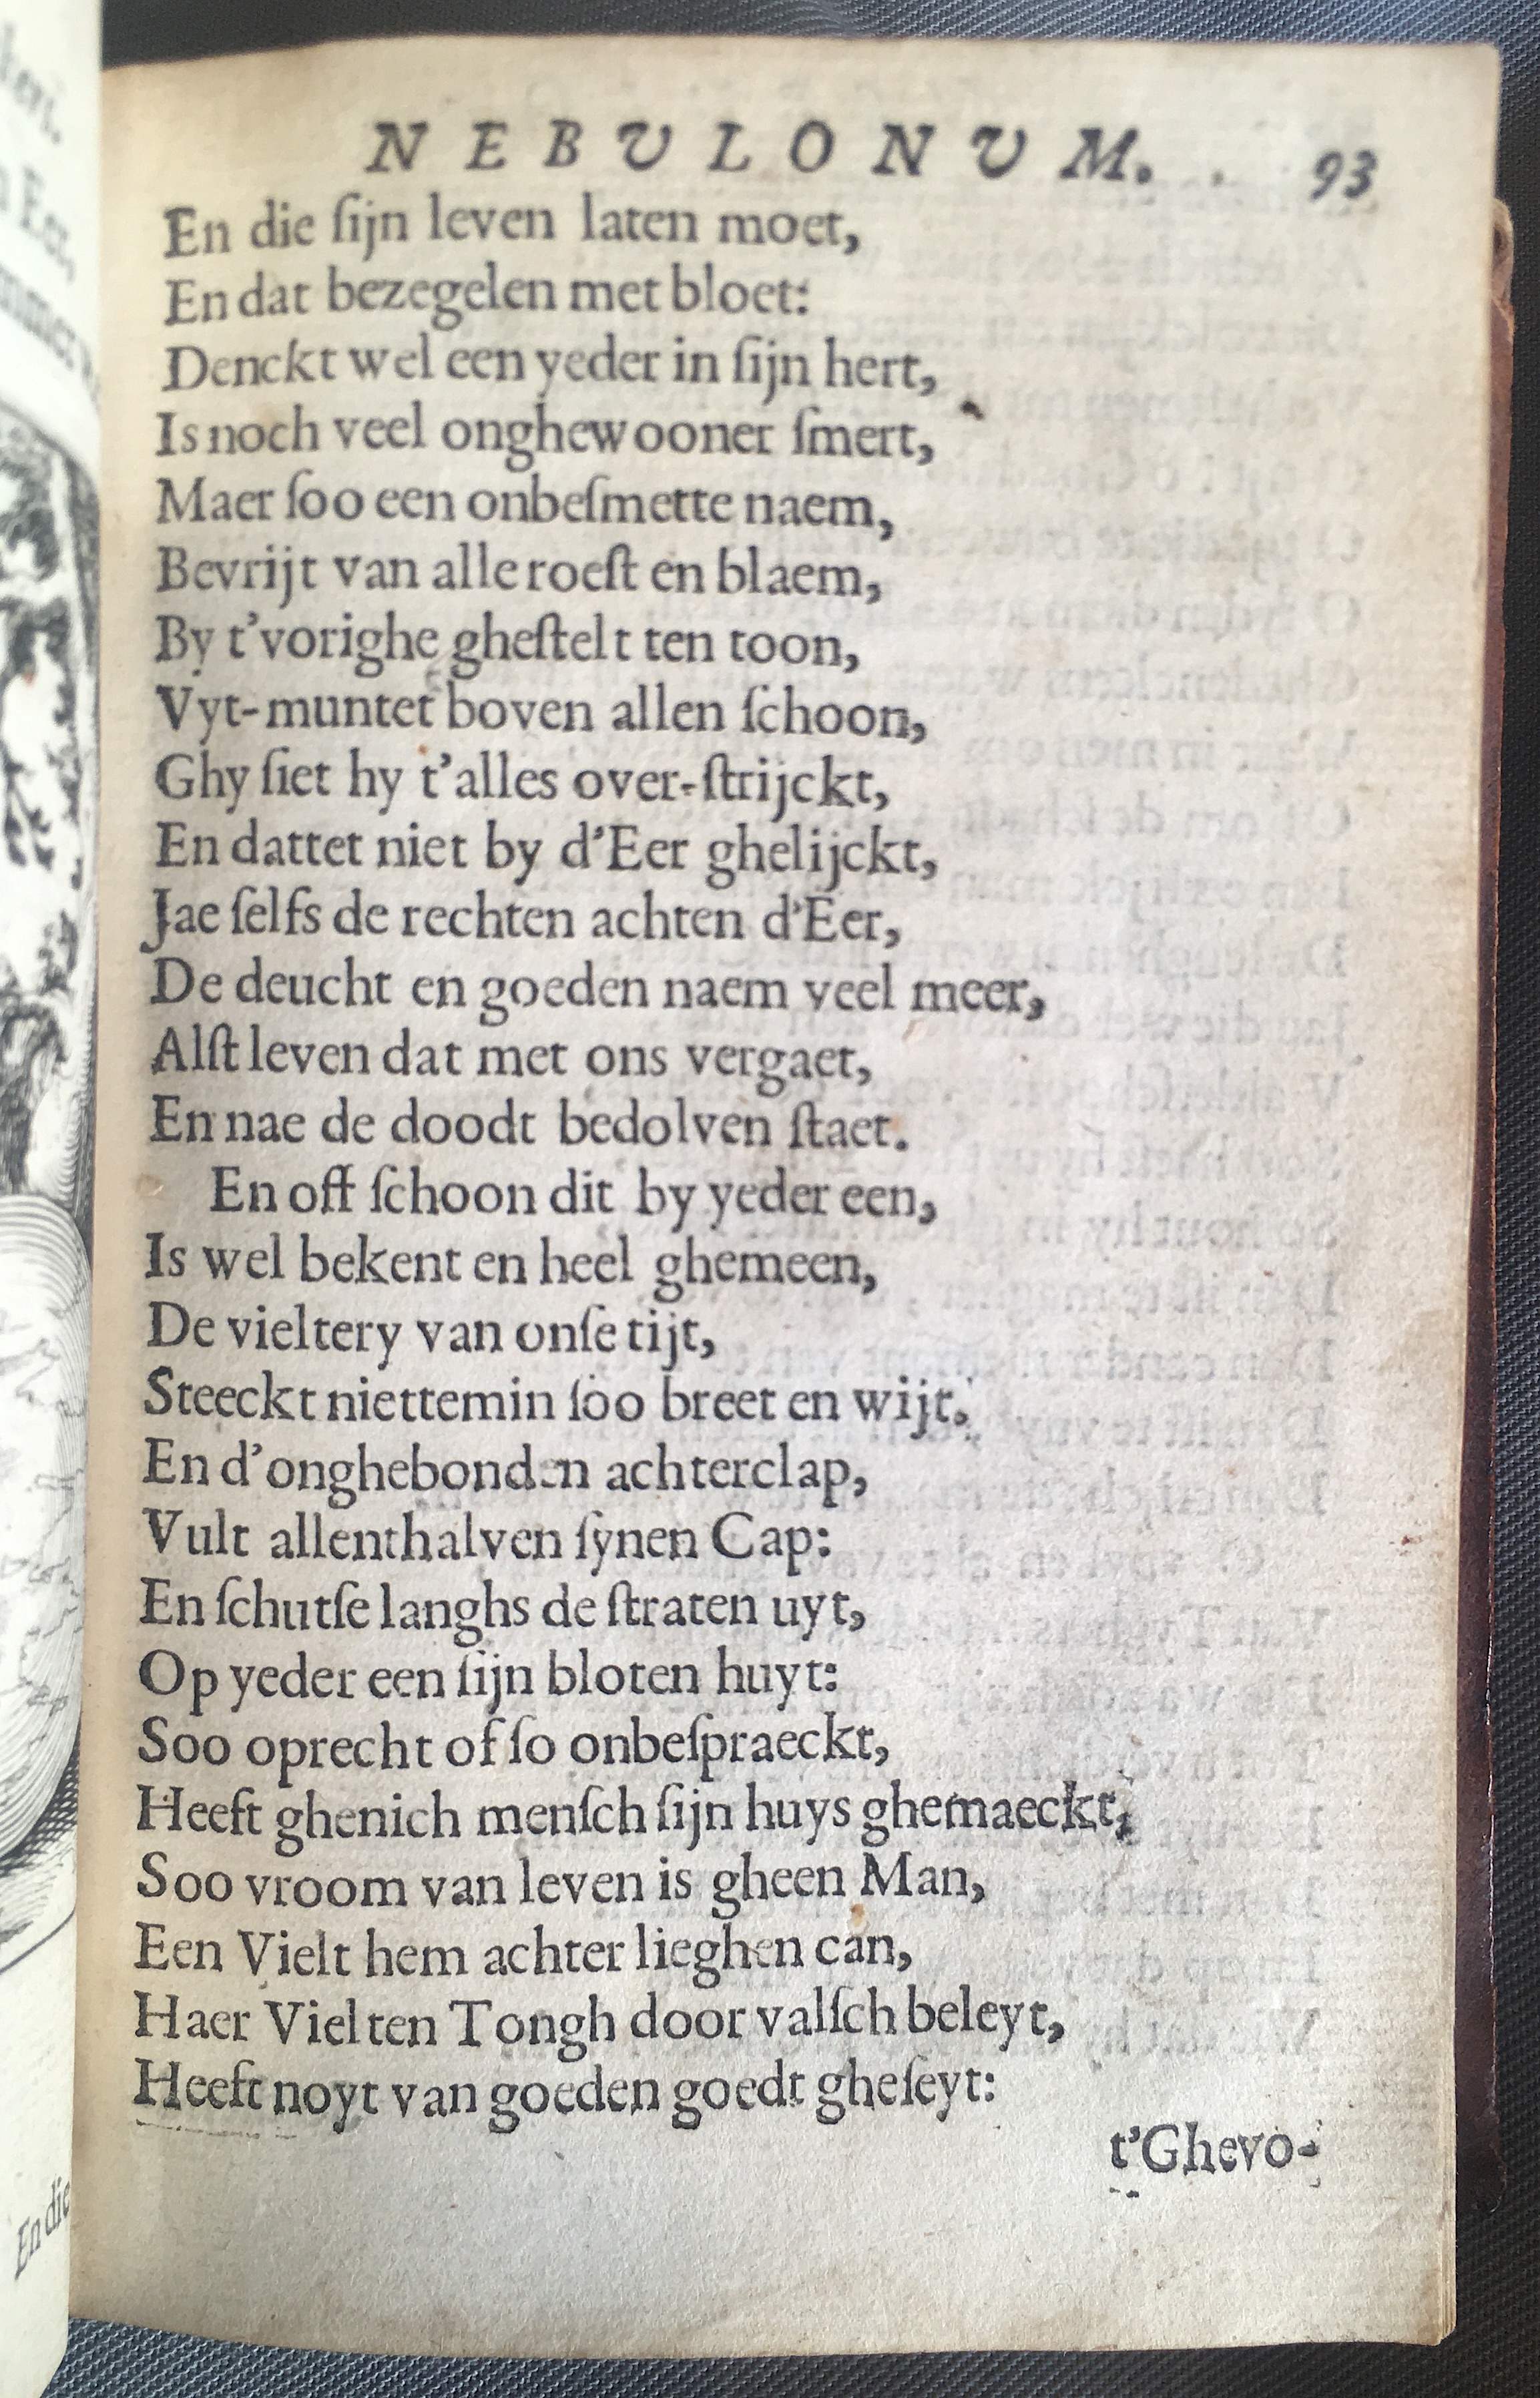 NEBULONUM. 93
En die ſijn leven laten moet,
En dat bezegelen met bloet:
Denckt wel een yeder in ſijn hert,
Is noch veel onghewooner ſmert,
Maer ſoo een onbeſmette naem,
Bevrijt van alle roeſt en blaem,
By t'vorighe gheſtelt ten toon,
Vyt-muntet boven allen ſchoon,
Ghy ſiet hy t'alles over-ſtrijckt,
En dattet niet by d'Eer ghelijckt,
Jae ſelfs de rechten achten d'Eer,
De deucht en goeden naem veel meer,
Alſt leven dat met ons vergaet,
En nae de doodt bedolven ſtaet.
En off ſchoon dit by yeder een,
Is wel bekent en heel ghemeen,
De vieltery van onſe tijt,
Steeckt niettemin ſoo breet en wijt.
En d'onghebonden achterclap,
Vult allenthalven ſynen Cap:
En ſchutſe langhs de ſtraten uyt,
Op yeder een ſijn bloten huyt:
Soo oprecht of ſo onbeſpraeckt,
Heeft ghenich menſch ſijn huys ghemaeckt,
Soo vroom van leven is gheen Man,
Een Vielt hem achter lieghen can,
Haer Vielten Tongh door valſch beleyt,
Heeft noyt van goeden goedt gheſeyt:
t'Ghevo-
En die